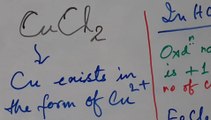 CuCl2
↓
Cu exists in
the form of Cu2+
In HC
Oxdn no
is +1
no of c
FeCl